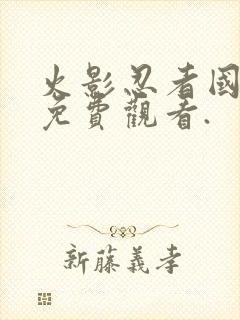 火影忍者國
免費觀看.
新藤義孝